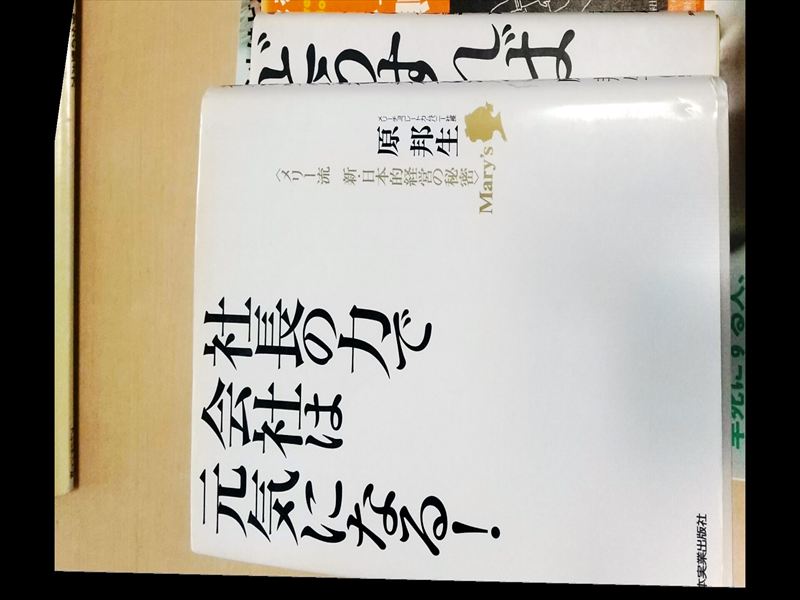 どうすれば
メリーチョコレートカムパニー社長
原 邦生
Mary's
〈メリー流 新・日本的経営の秘密〉
社長の力で
会社は
元気になる!
本実業出版社
にする人、